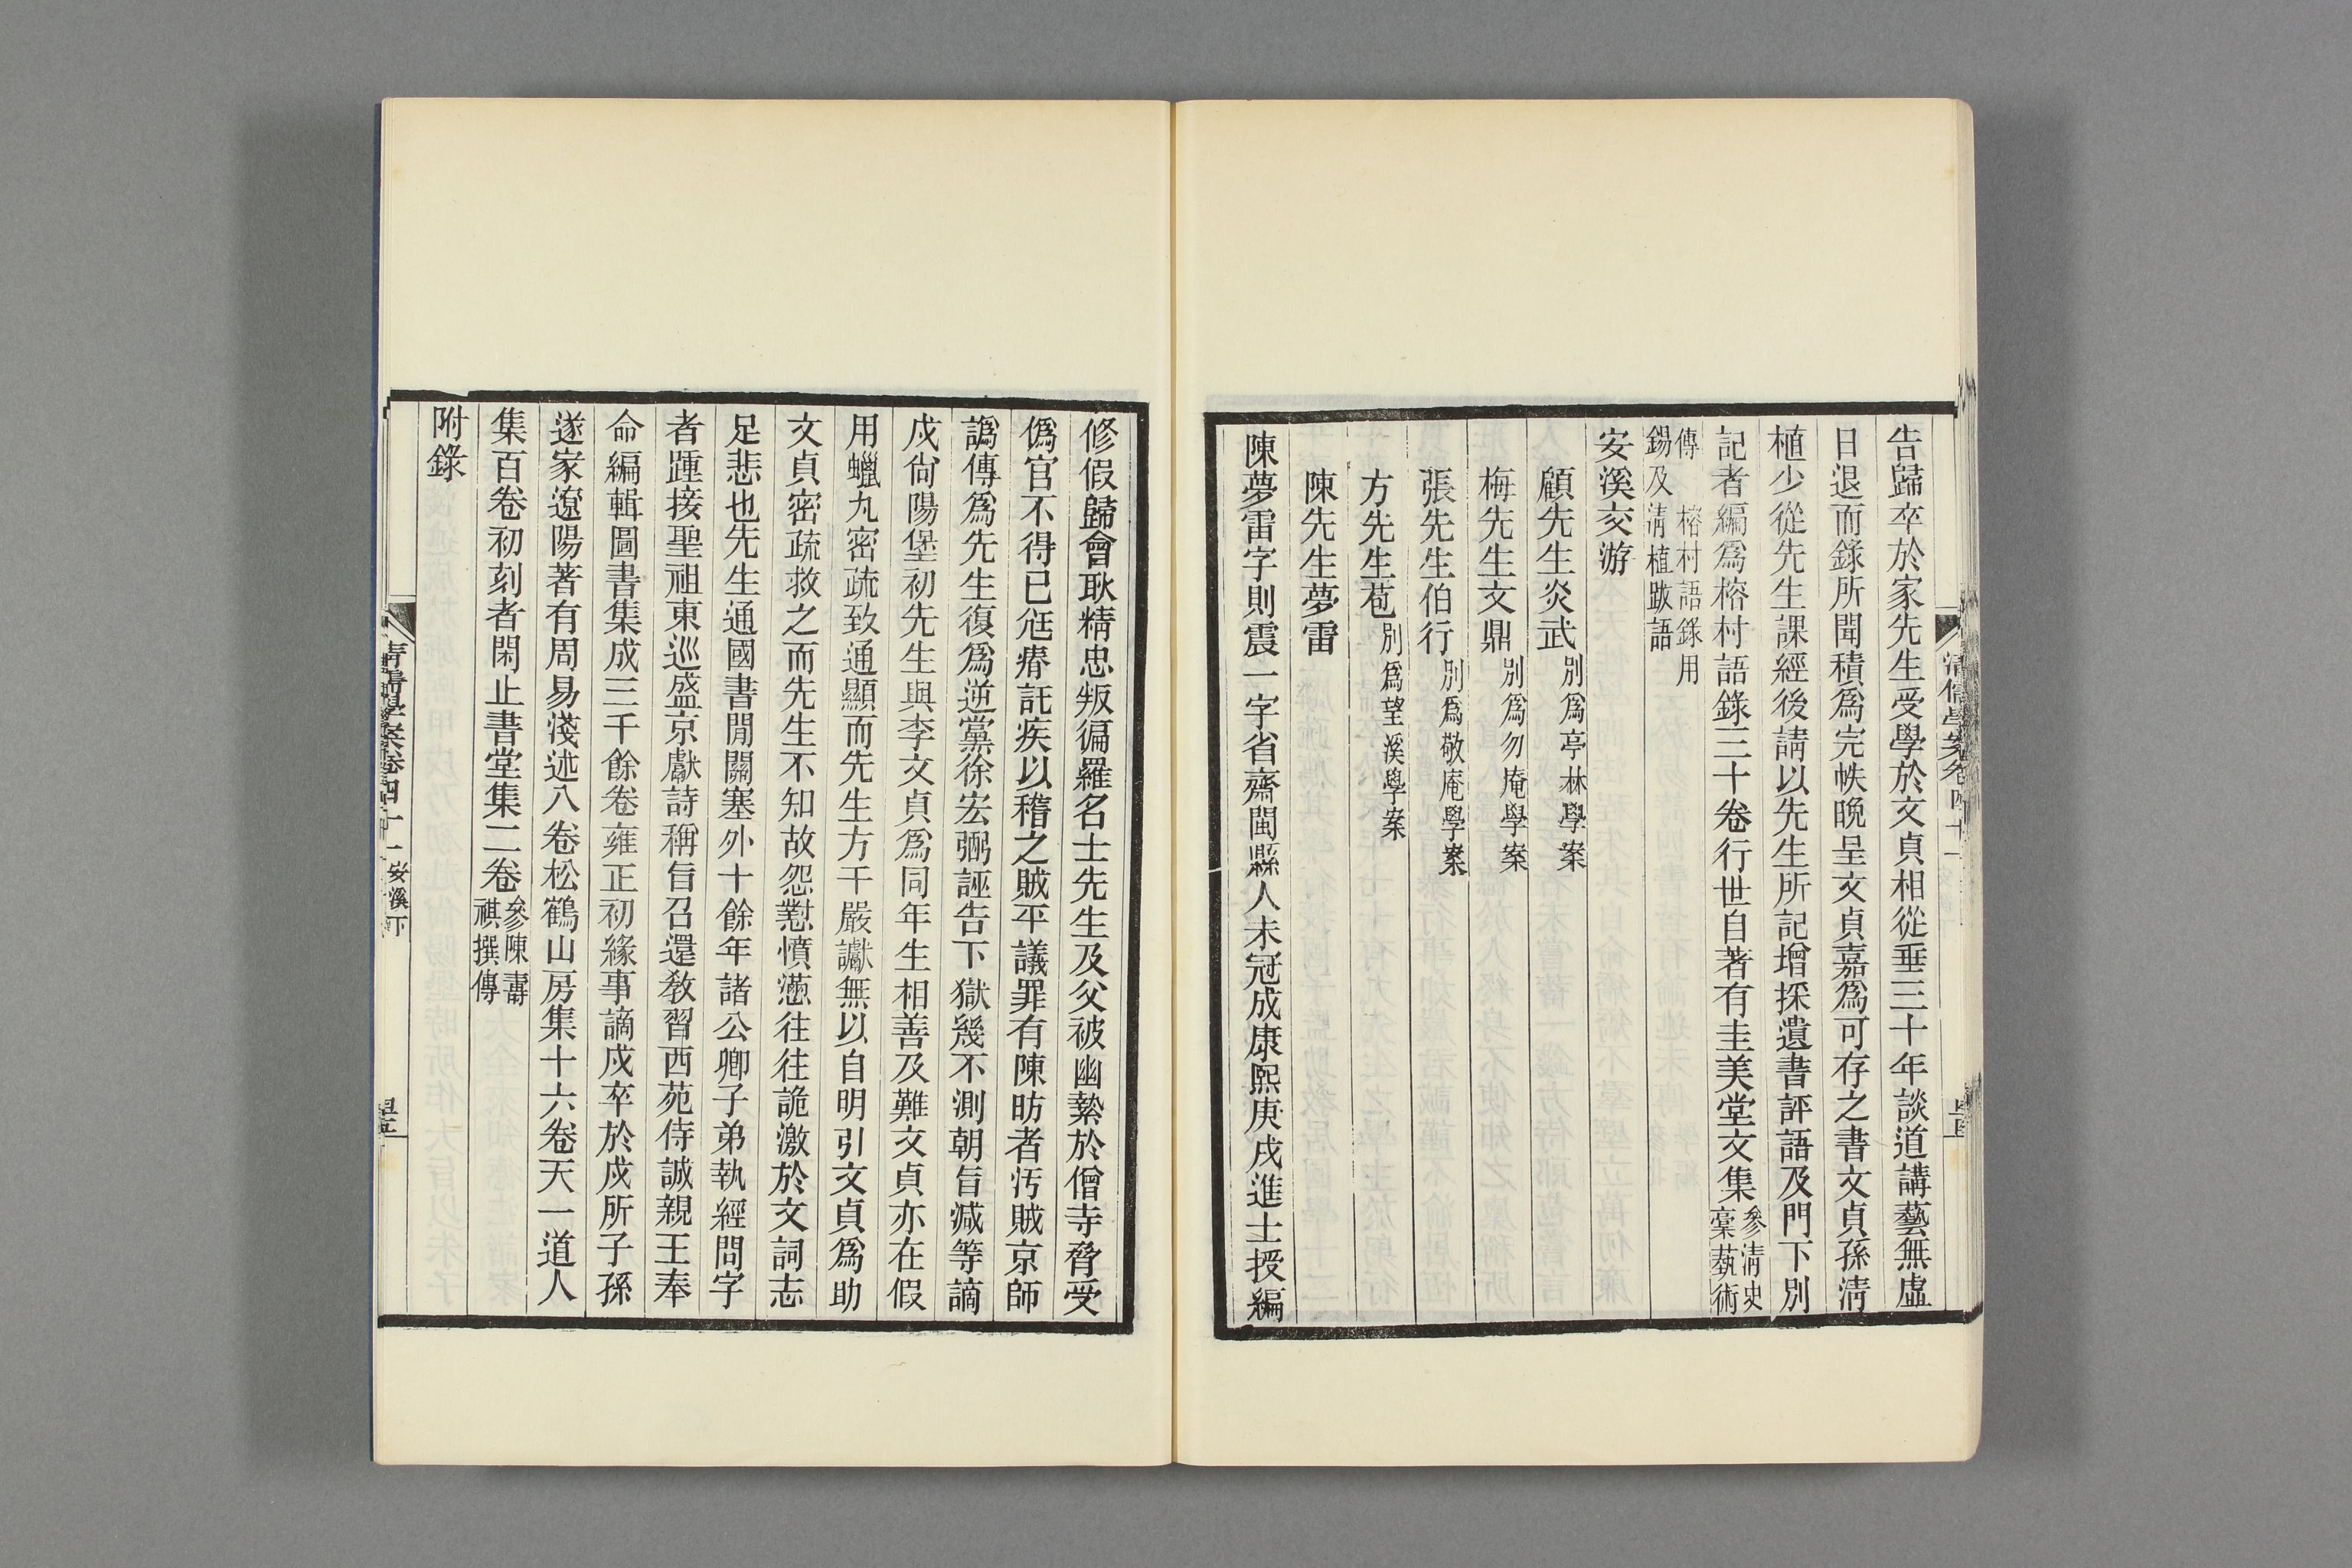 告歸卒於家先生受學於文貞相從垂三十年談道講藝無虛
日退而錄所聞積爲完帙晚呈文貞嘉爲可存之書文貞孫淸
植少從先生課經後請以先生所記增採遺書評語及門下別
記者編爲榕村語錄三十卷行世自著有圭美堂文集參淸史
稾藝術
傳 榕村語錄用
錫及淸植跋語
安溪交游
顧先生炎武別爲亭林學案
梅先生文鼎別爲勿庵學案
張先生伯行別爲敬庵學案
方先生苞別爲望溪學案
陳先生夢雷
陳夢雷字則震一字省齋閩縣人未冠成康熙庚戌進士授編
修假歸會耿精忠叛徧羅名士先生及父被幽縶於僧寺脅受
僞官不得已尪瘠託疾以稽之賊平議罪有陳昉者汚賊京師
譌傳爲先生復爲逆黨徐宏弼誣告下獄幾不測朝旨減等謫
戍尙陽堡初先生與李文貞爲同年生相善及難文貞亦在假
用蠟丸密疏致通顯而先生方干嚴讞無以自明引文貞爲助
文貞密疏救之而先生不知故怨懟憤懣往往詭激於文詞志
足悲也先生通國書閒關塞外十餘年諸公卿子弟執經問字
者踵接聖祖東巡盛京獻詩稱旨召還敎習西苑侍誠親王奉
命編輯圖書集成三千餘卷雍正初緣事謫戍卒於戍所子孫
遂家遼陽著有周易淺述八卷松鶴山房集十六卷天一道人
集百卷初刻者閑止書堂集二卷參陳壽
祺撰傳
附錄
淸儒學案卷四十一 安溪下